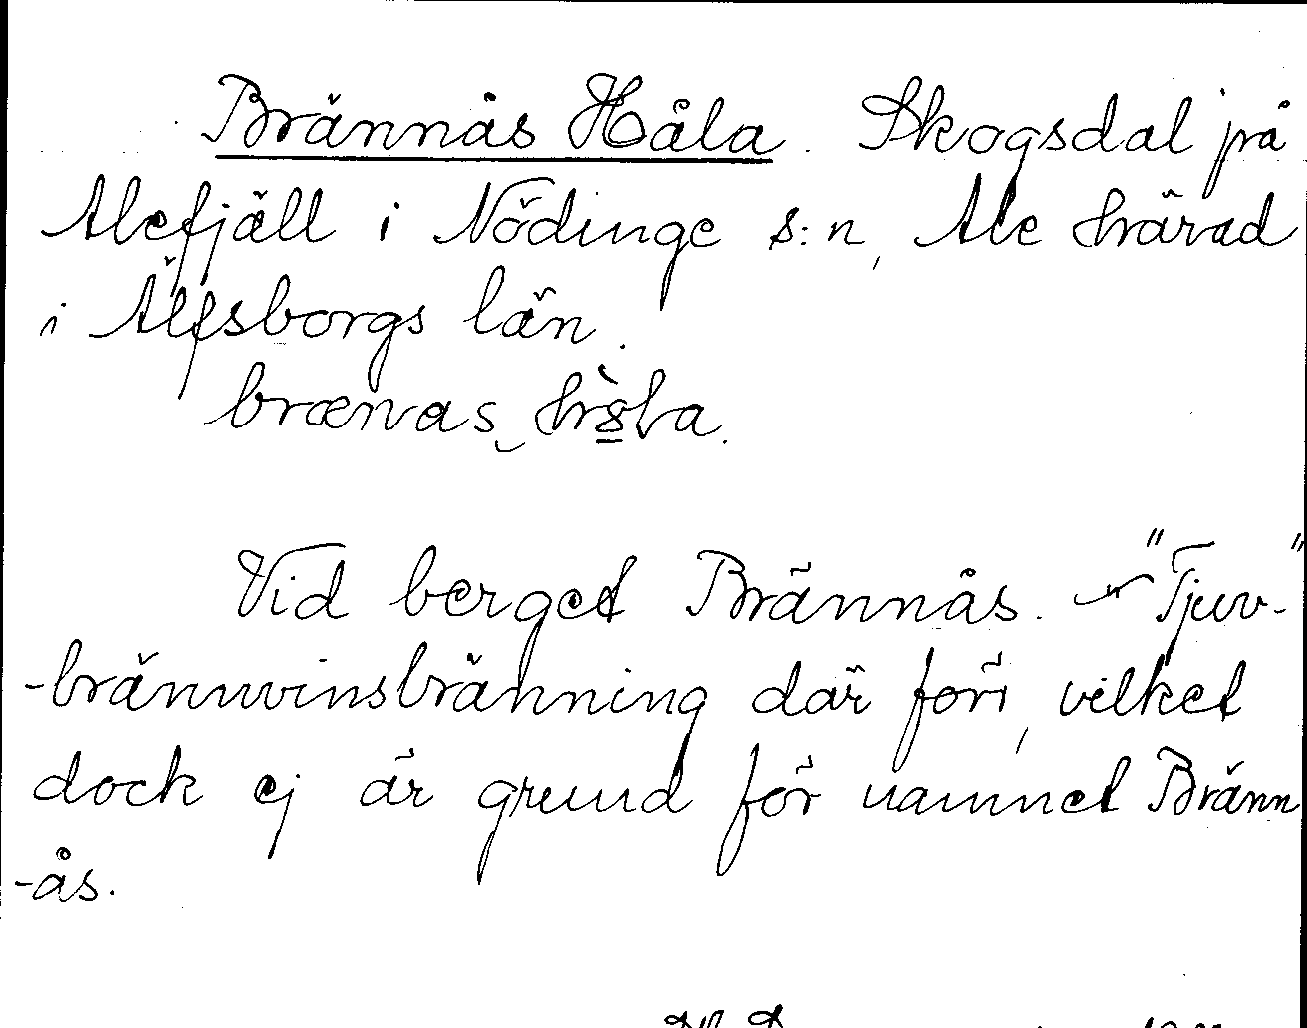 Brännås Håla. Skogsdal på
Alefjäll i Nödinge s:n, Ale härad
i Älfsborgs län.
Vid berget Brännås. "Tjuv-"
-brännvinsbränning där förr, vilket
dock ej är grund för namnet Bränn
-ås.